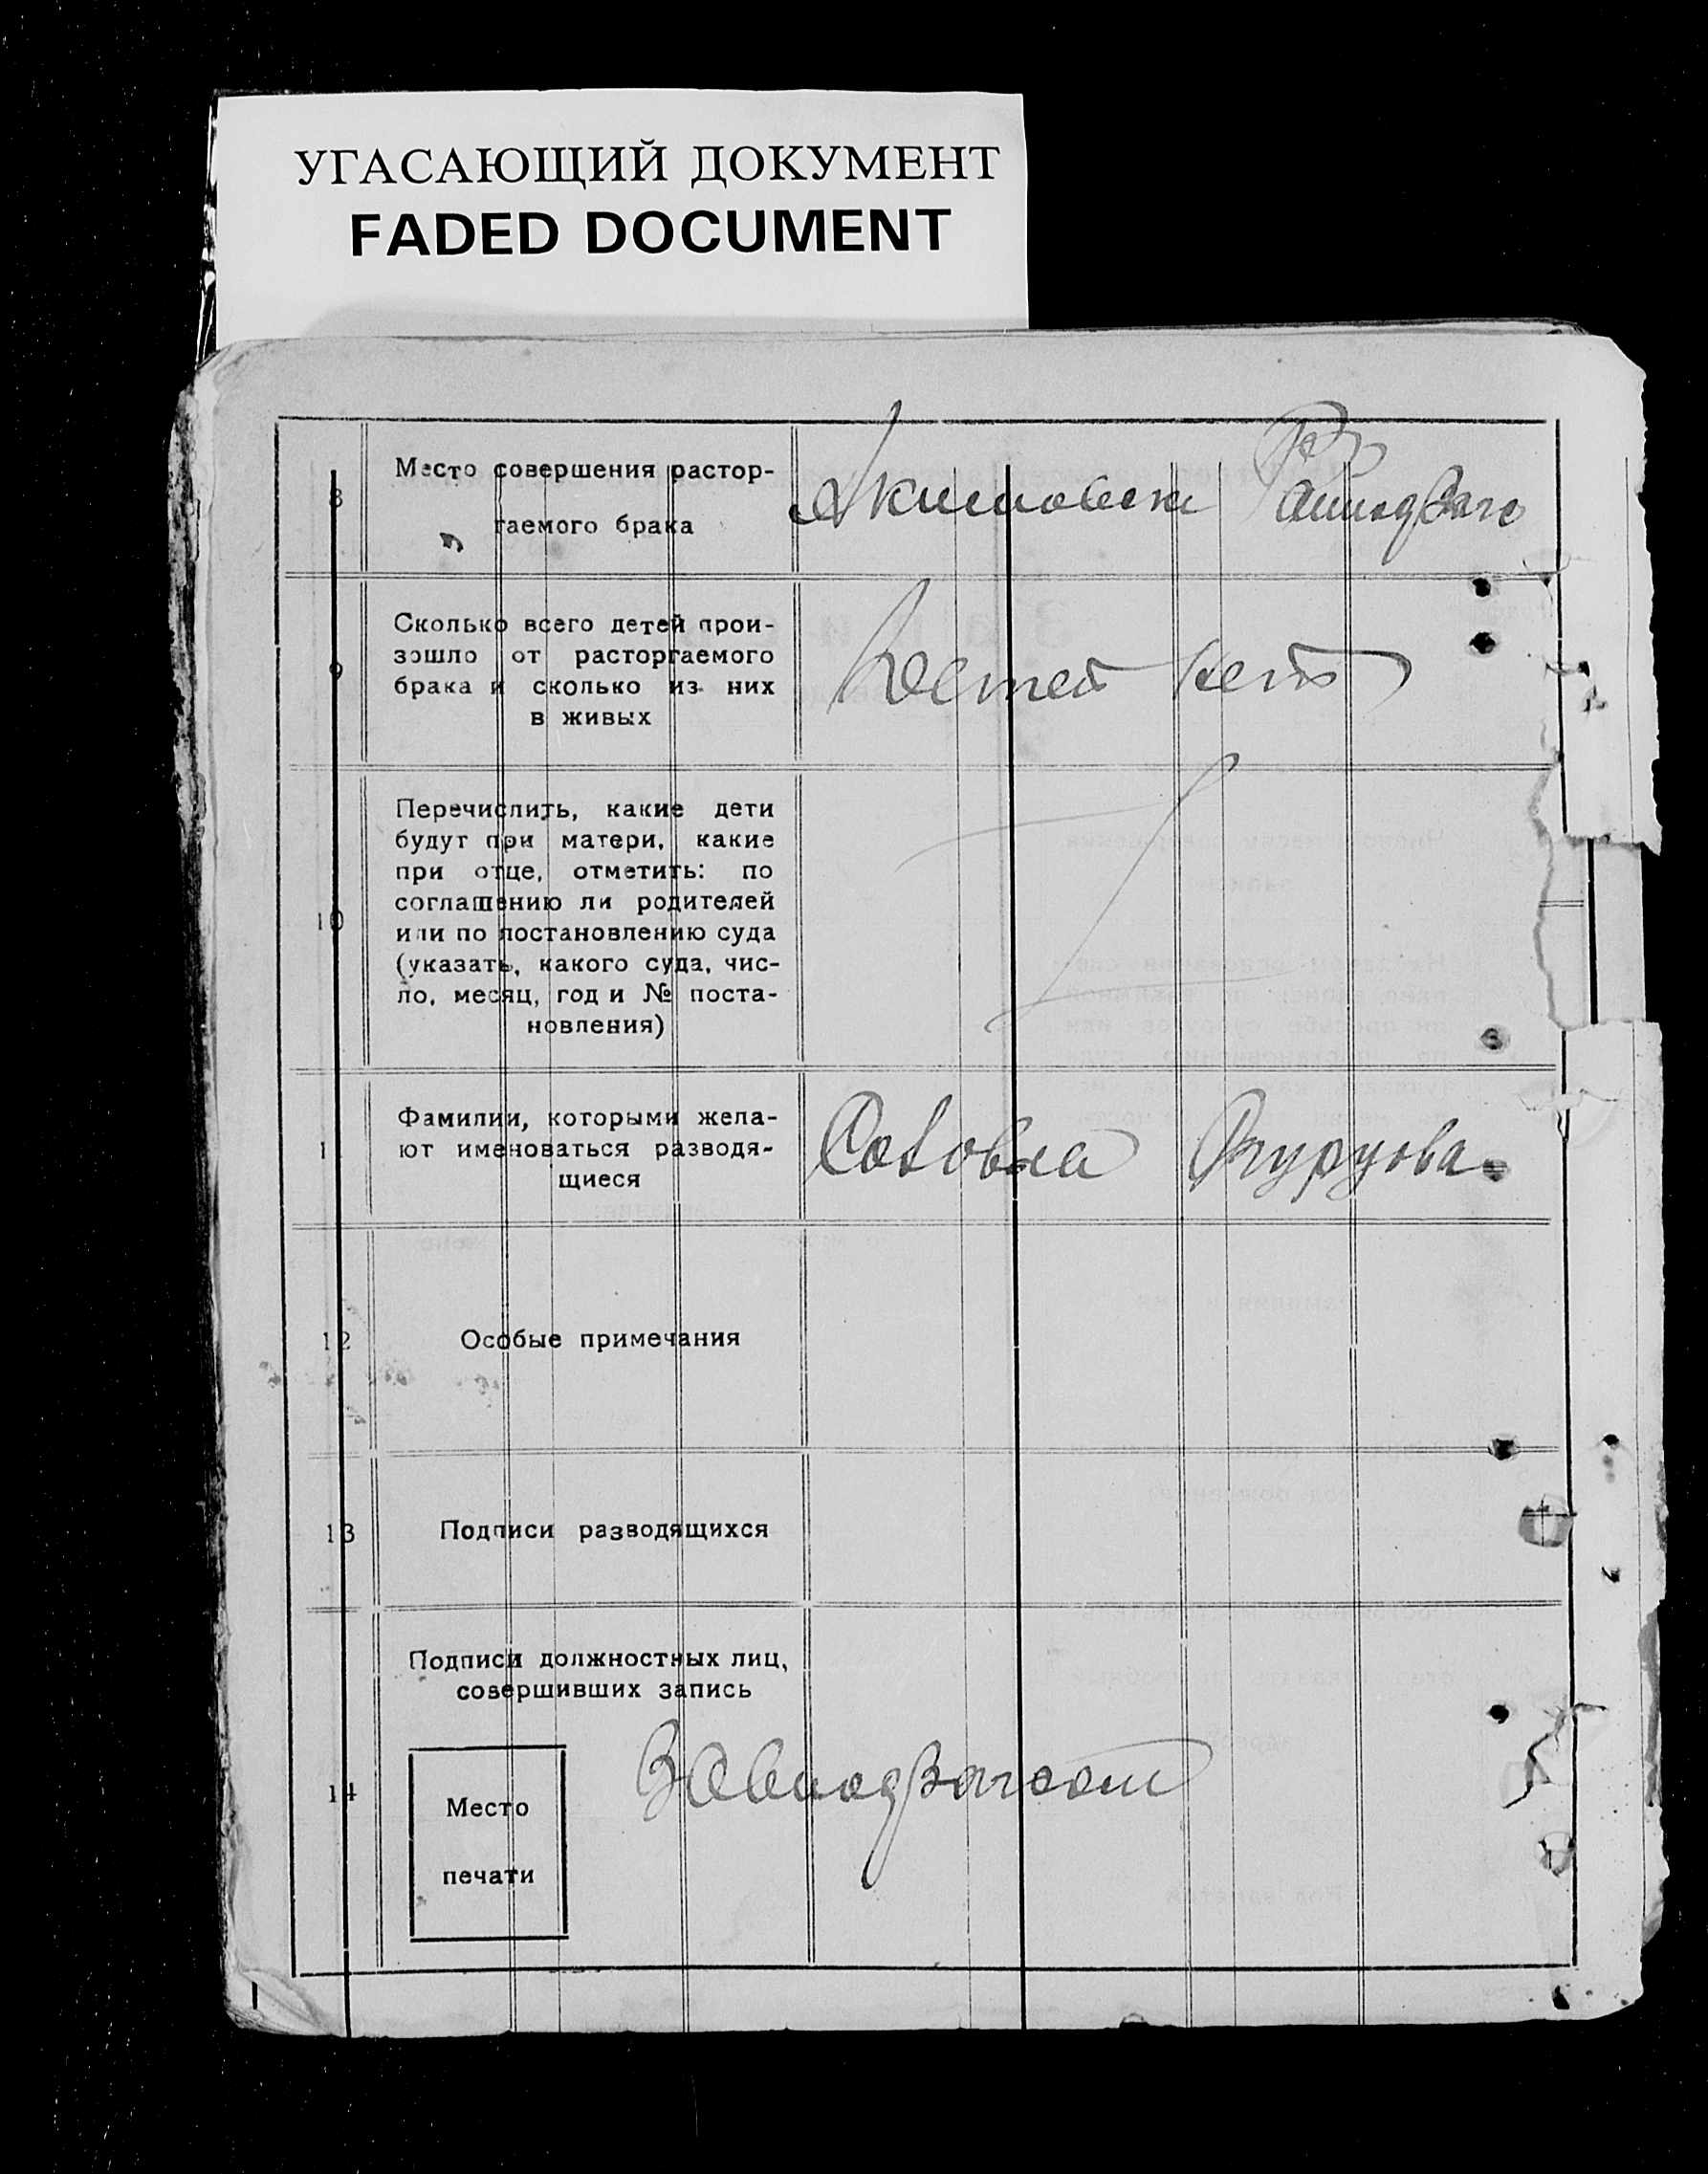 УГАСАЮЩИЙ ДОКУМЕНТ
FADED DOCUMENT
8
Место совершения растор-
гаемого брака
9
Сколько всего детей прои-
зошло от расторгаемого
брака и сколько из них
в живых
Детей нет
10
Перечислить, какие дети
будут при матери, какие
при отце, отметить: по
соглашению ли родителей
или по постановлению суда
(указать, какого суда, чис-
ло, месяц, год и № поста-
новления)
11
Фамилии, которыми жела-
ют именоваться разводя-
щиеся
12
Особые примечания
13
Подписи разводящихся
Подписи должностных лиц,
совершивших запись
14
Место
печати